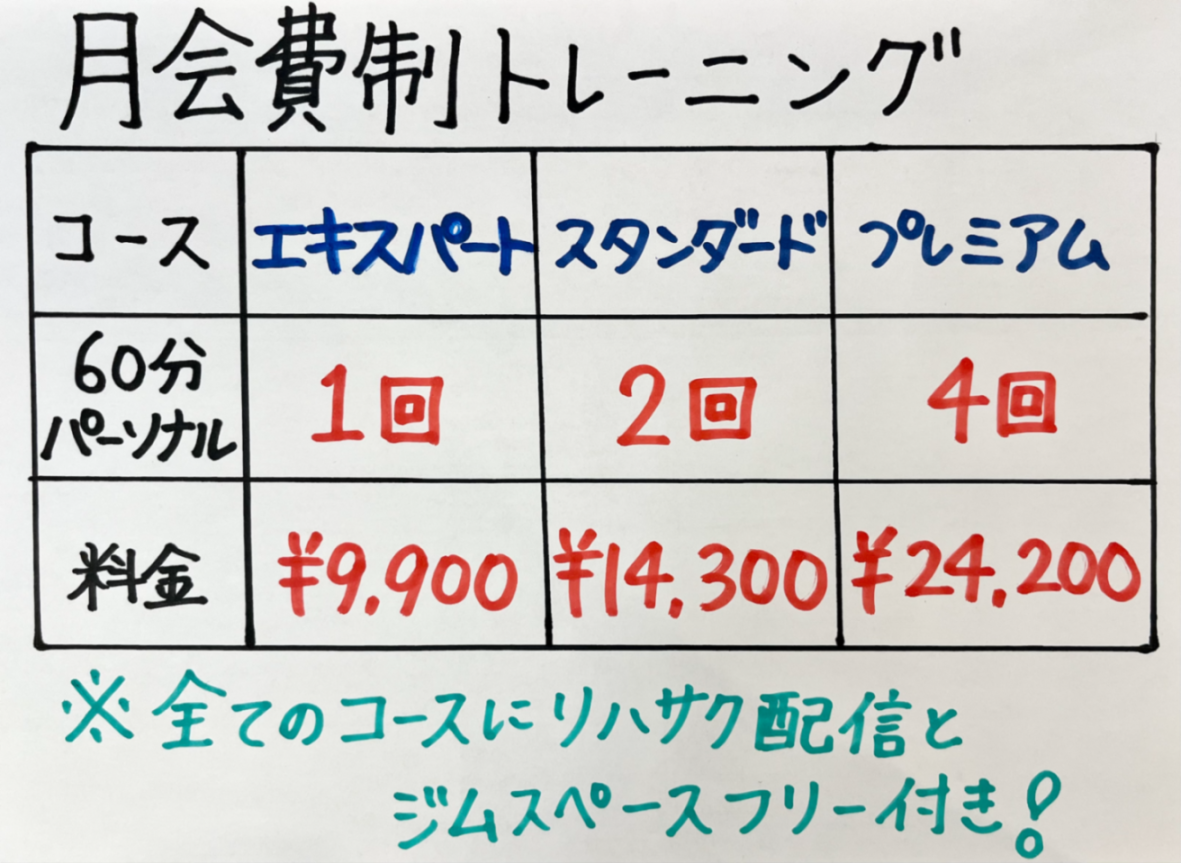 月会費制トレーニング
コース エキスパート スタンダード プレミアム
60分パーソナル 1回 2回 4回
料金 ¥9,900 ¥14,300 ¥24,200
※全てのコースにリハサク配信と
ジムスペースフリー付き!